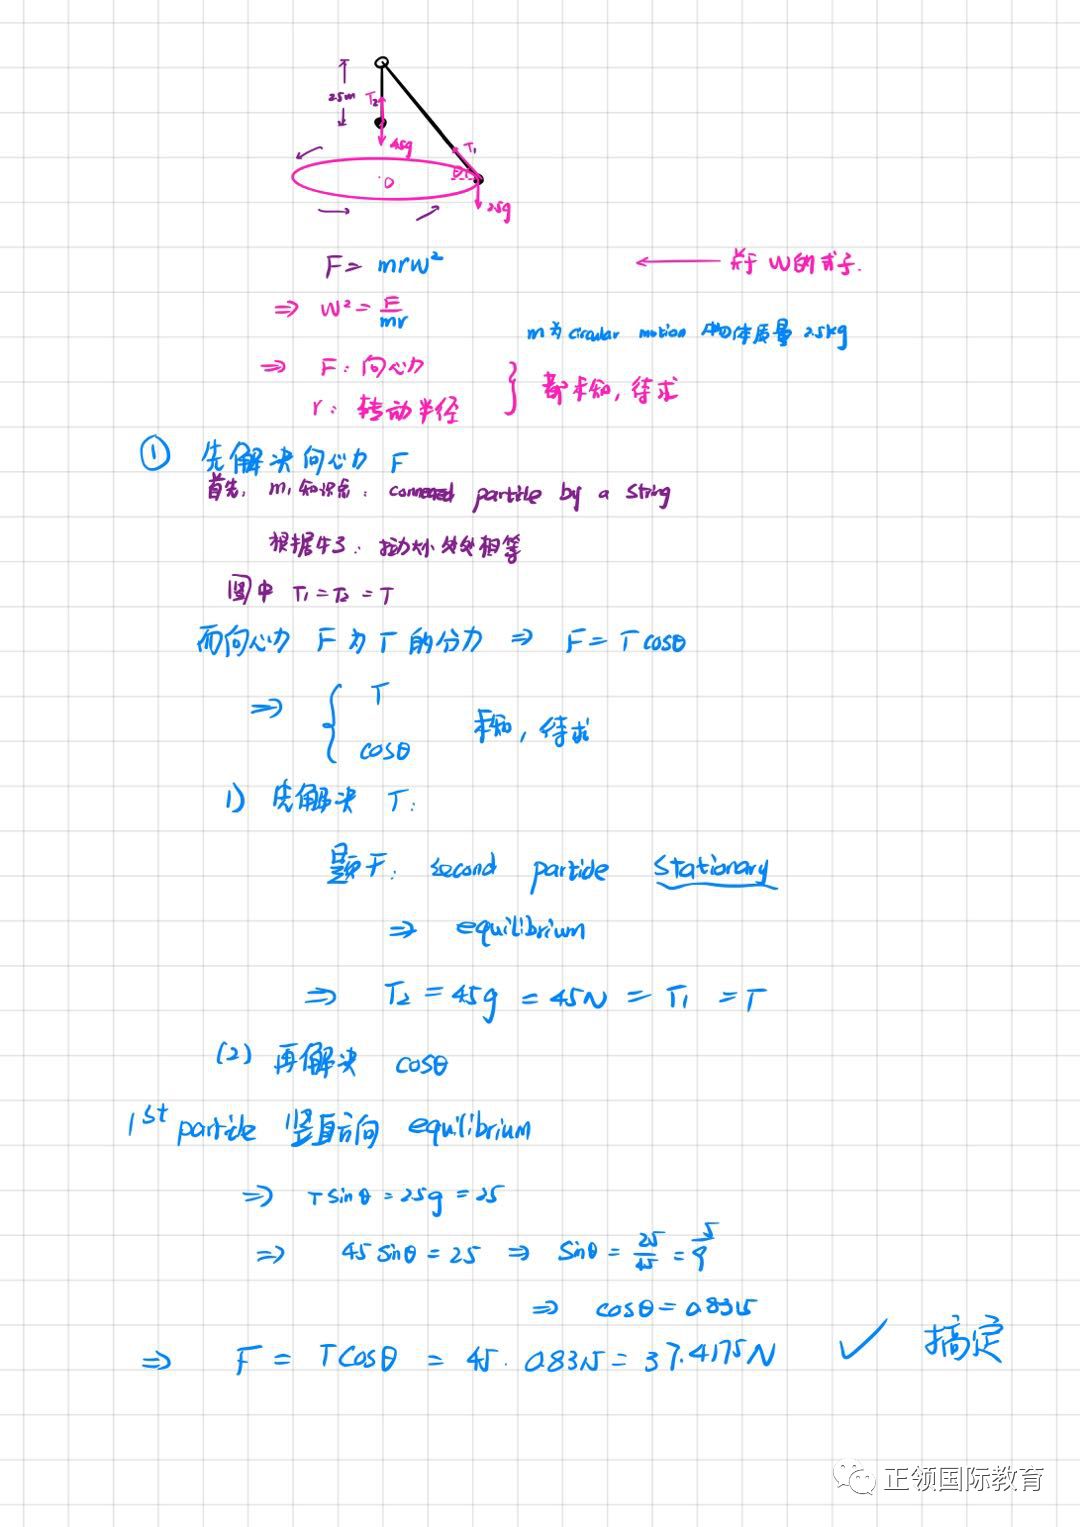 2.5m
T₂
4.5g
T₁
θ
O
2.5g
F = mrω²
← 关于 ω 的式子.
⇒ ω² = F/mr
m为 circular motion 物体质量 2.5kg
⇒ F: 向心力
r: 转动半径
} 都未知, 待求
① 先解决向心力 F
首先, m₁知识点: connected particle by a string
根据牛3: 拉力大小处处相等
图中 T₁ = T₂ = T
而向心力 F 为 T 的分力 ⇒ F = T cosθ
⇒ { T
cosθ
未知, 待求
1) 先解决 T:
题干: second particle stationary
⇒ equilibrium
⇒ T₂ = 4.5g = 45N = T₁ = T
(2) 再解决 cosθ
1st particle 竖直方向 equilibrium
⇒ T sinθ = 2.5g = 25
⇒ 45 sinθ = 25 ⇒ sinθ = 25/45 = 5/9
⇒ cosθ = 0.8315
⇒ F = T cosθ = 45 · 0.8315 = 37.4175N ✓ 搞定
正领国际教育